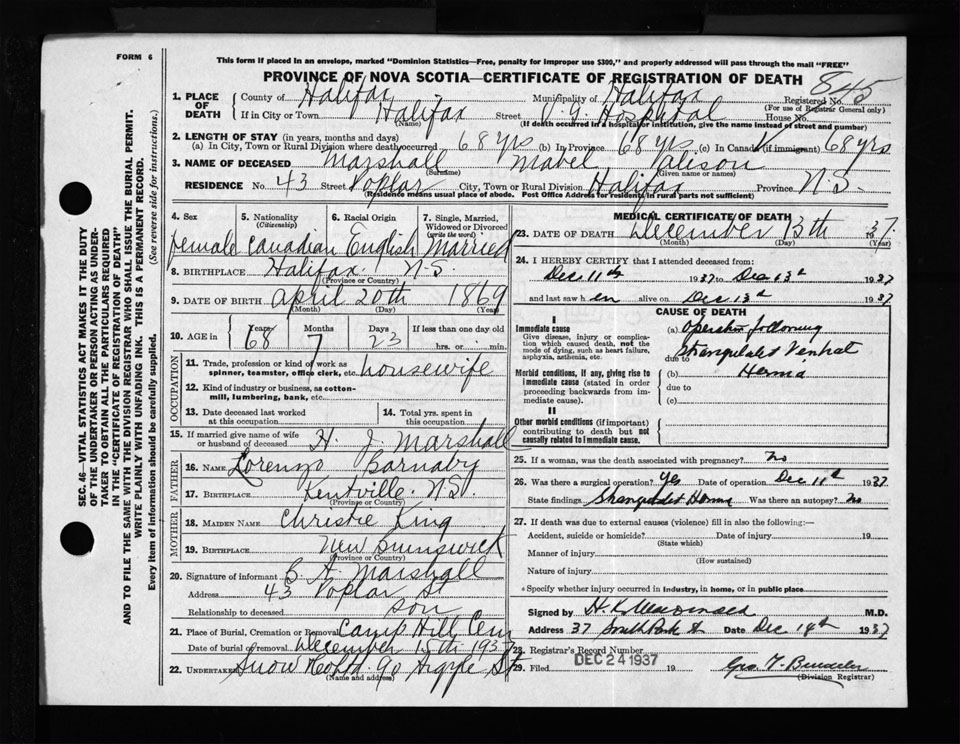 FORM 6
This form if placed in an envelope, marked "Dominion Statistics—Free, penalty for improper use $300," and properly addressed will pass through the mail "FREE"
PROVINCE OF NOVA SCOTIA—CERTIFICATE OF REGISTRATION OF DEATH
845
1. PLACE OF DEATH County of Halifax Municipality of Halifax Registered No.
(For use of Registrar General only)
If in City or Town Halifax Street V. G. Hospital House No.
(Name) (If death occurred in a hospital or institution, give the name instead of street and number)
2. LENGTH OF STAY (in years, months and days)
(a) In City, Town or Rural Division where death occurred 68 yrs (b) In Province 68 yrs. (c) In Canada (if immigrant) 68 yrs
3. NAME OF DECEASED Marshall Mabel
(Surname) (Given name or names)
RESIDENCE No. 43 Street Poplar City, Town or Rural Division Halifax Province N.S.
(Residence means usual place of abode. Post Office Address for residents in rural parts not sufficient)
4. Sex 5. Nationality (Citizenship) 6. Racial Origin 7. Single, Married, Widowed or Divorced (write the word)
female Canadian English Married
8. BIRTHPLACE Halifax N.S.
(Province or Country)
9. DATE OF BIRTH April 20th 1869
(Month) (Day) (Year)
10. AGE in Years Months Days If less than one day old
68 7 23 hrs. or min.
OCCUPATION
11. Trade, profession or kind of work as spinner, teamster, office clerk, etc. housewife
12. Kind of industry or business, as cotton-mill, lumbering, bank, etc.
13. Date deceased last worked at this occupation
14. Total yrs. spent in this occupation
15. If married give name of wife or husband of deceased H. J Marshall
FATHER
16. NAME Lorenzo Barnaby
17. BIRTHPLACE Kentville. N.S.
MOTHER
18. MAIDEN NAME Christie King
19. BIRTHPLACE New Brunswick
(Province or Country)
20. Signature of informant Marshall
Address 43 Poplar St
Relationship to deceased son
21. Place of Burial, Cremation or Removal Camp Hill Cem
Date of burial or removal December 15th 1937
22. UNDERTAKER Snow 90 Argyle St
(Name and address)
MEDICAL CERTIFICATE OF DEATH
23. DATE OF DEATH December 13th 1937.
(Month) (Day) (Year)
24. I HEREBY CERTIFY that I attended deceased from:
Dec 11th 1937 to Dec 13th 1937
and last saw her alive on Dec 13th 1937
CAUSE OF DEATH
I
Immediate cause
Give disease, injury or complication which caused death, not the mode of dying, such as heart failure, asphyxia, asthenia, etc.
(a) Operation following
due to Strangulated Ventral
Morbid conditions, if any, giving rise to immediate cause (stated in order proceeding backwards from immediate cause).
(b) Hernia
due to
(c)
II
Other morbid conditions (if important) contributing to death but not causally related to immediate cause.
25. If a woman, was the death associated with pregnancy? no
26. Was there a surgical operation? Yes Date of operation Dec 11th 1937.
State findings Strangulated Hernia Was there an autopsy? No
27. If death was due to external causes (violence) fill in also the following:—
Accident, suicide or homicide? Date of injury 19
(State which)
Manner of injury
(How sustained)
Nature of injury
Specify whether injury occurred in industry, in home, or in public place
Signed by H. K. MacDonald M.D.
Address 37 South Park St Date Dec 14th 1937
28. Registrar's Record Number
29. Filed DEC 24 1937 19
(Division Registrar)
SEC. 46—VITAL STATISTICS ACT MAKES IT THE DUTY
OF THE UNDERTAKER OR PERSON ACTING AS UNDER-
TAKER TO OBTAIN ALL THE PARTICULARS REQUIRED
IN THE "CERTIFICATE OF REGISTRATION OF DEATH"
AND TO FILE THE SAME WITH THE DIVISION REGISTRAR WHO SHALL ISSUE THE BURIAL PERMIT.
WRITE PLAINLY WITH UNFADING INK. THIS IS A PERMANENT RECORD.
Every item of information should be carefully supplied. (See reverse side for instructions.)